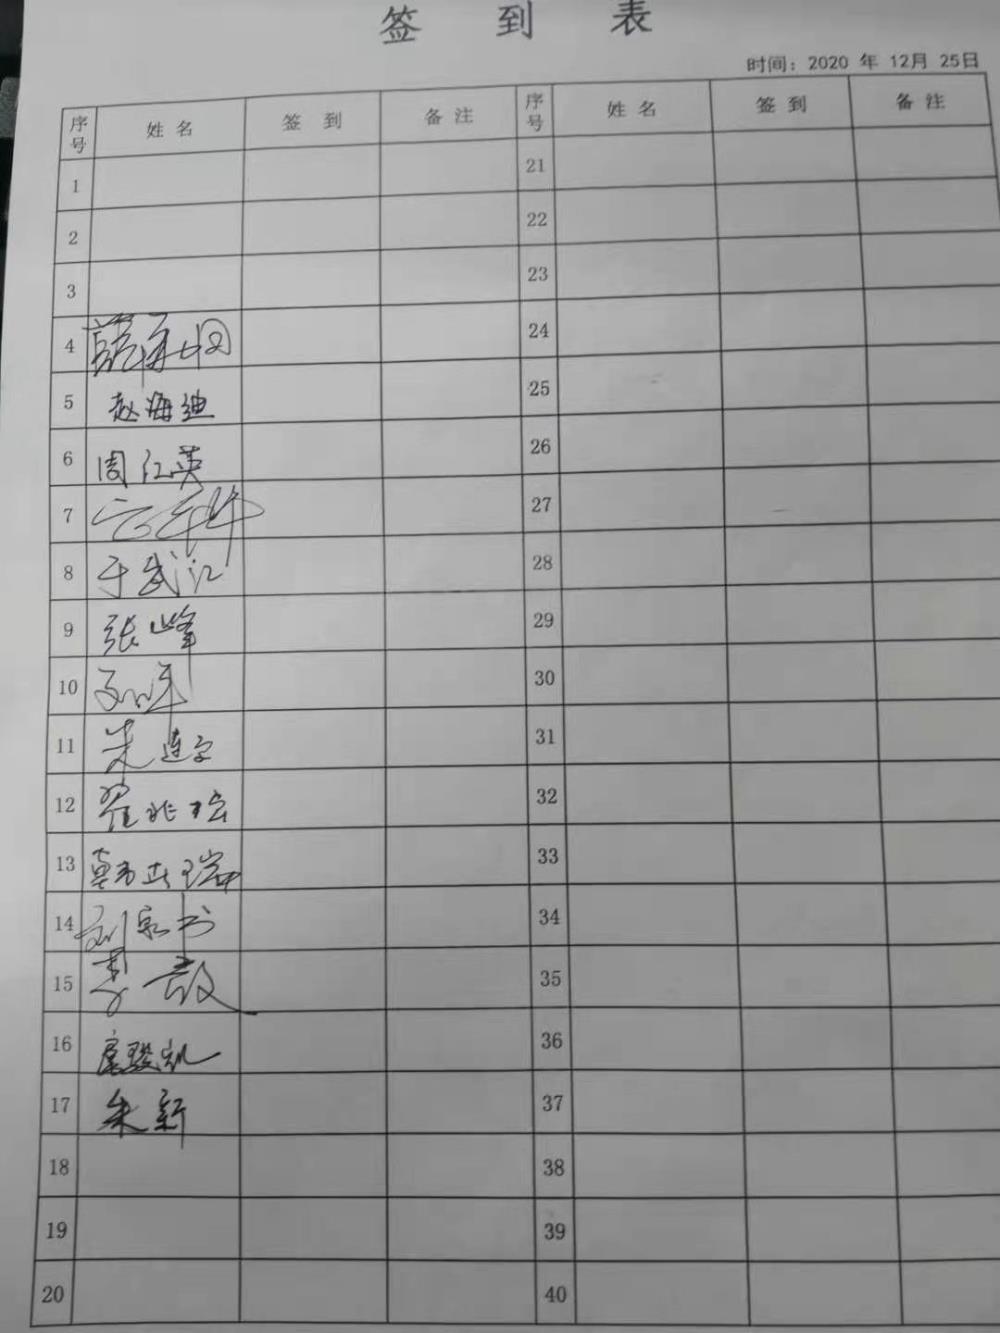 签到表
时间：2020 年 12月 25日
序号 姓名 签到 备注 序号 姓名 签到 备注
1 21
2 22
3 23
4 24
5 赵海迪 25
6 周红英 26
7 27
8 于武江 28
9 张峰 29
10 30
11 朱连宇 31
12 翟兆 32
13 韩 瑞 33
14 刘 34
15 李 35
16 36
17 朱新 37
18 38
19 39
20 40